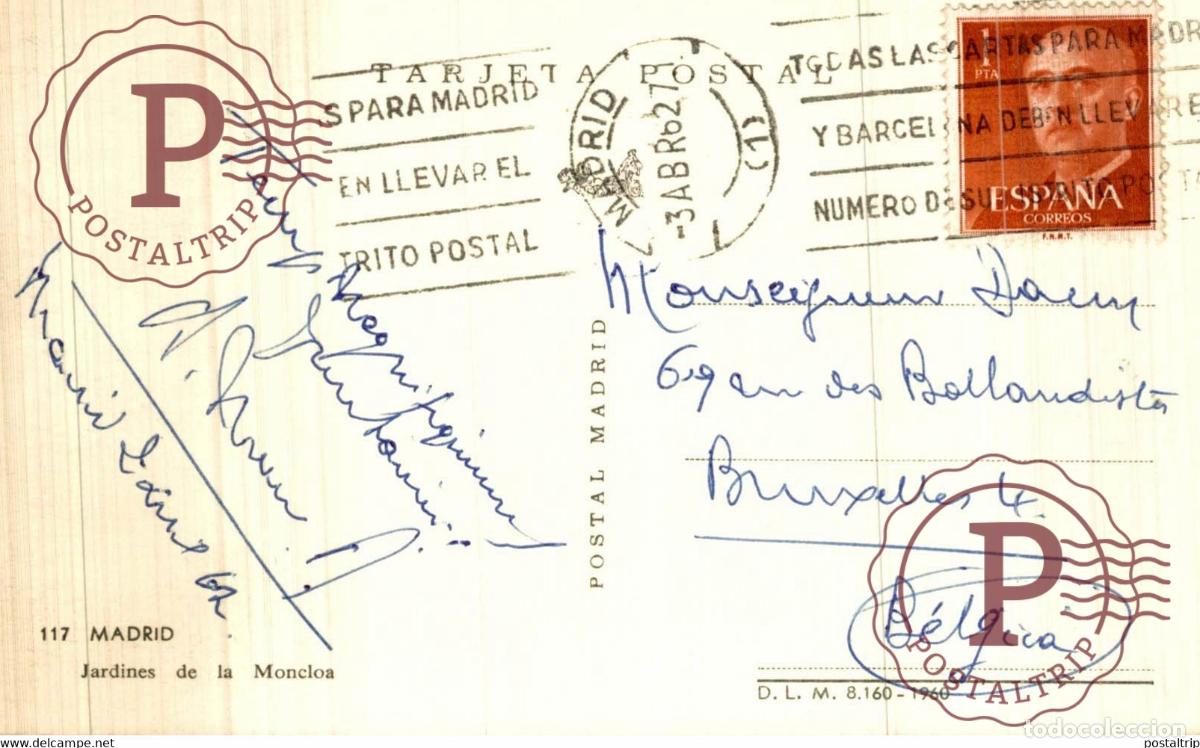 TARJETA POSTAL
S PARA MADRID
EN LLEVAR EL
TRITO POSTAL
MADRID
-3 ABR 62
(1)
TODAS LAS CARTAS PARA MADR
Y BARCELONA DEBEN LLEVAR E
NUMERO DE SU DISTRITO POSTA
1
PTA
ESPAÑA
CORREOS
F.N.M.T.
P
POSTALTRIP
Madrid 2 62
POSTAL MADRID
Monseigneur Daem
69 rue des Bollandistes
Bruxelles 4.
Bélgica
P
POSTALTRIP
117 MADRID
Jardines de la Moncloa
D. L. M. 8.160 - 1960
todocoleccion
www.delcampe.net
postaltrip